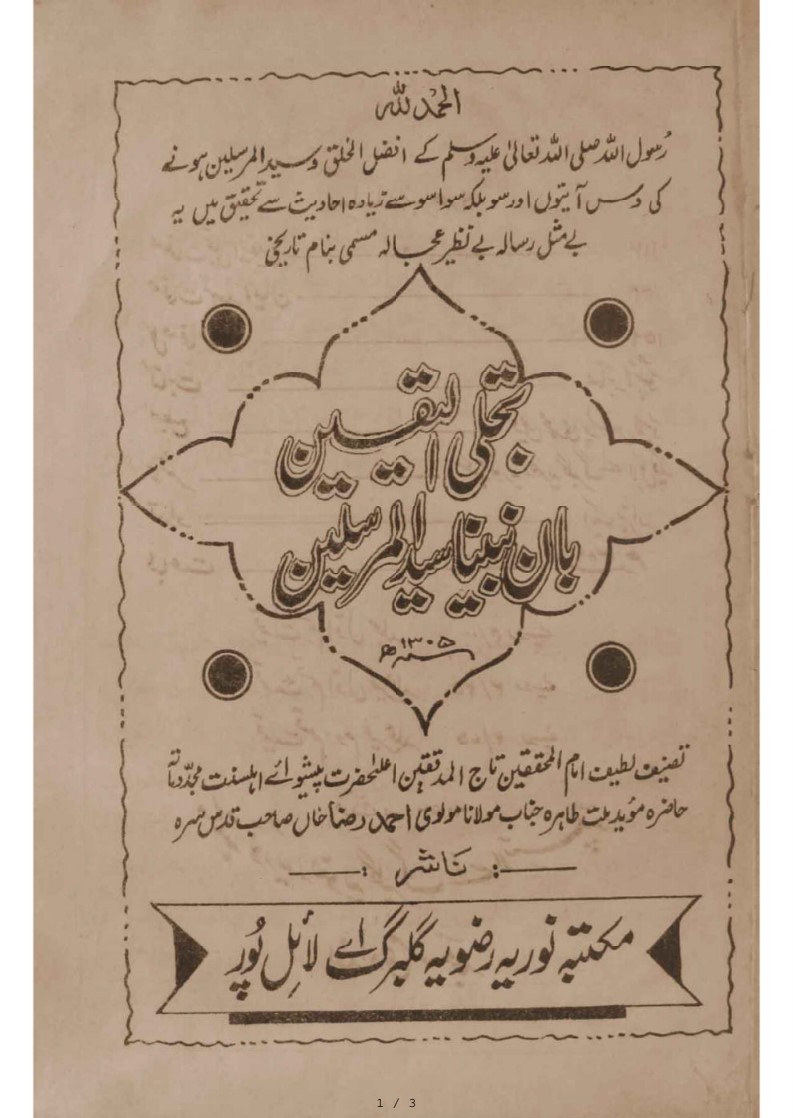 الحمد للہ
رسول اللہ صلی اللہ تعالیٰ علیہ وسلم کے افضل الخلق و سید المرسلین ہونے
کی دس آیتوں اور سو بلکہ سوا سو سے زیادہ احادیث سے تحقیق میں یہ
بے مثل رسالہ بے نظیر عجالہ مسمی بنام تاریخی
تجلی الیقین
بان نبینا سید المرسلین
۱۳۰۵ھ
تصنیف لطیف امام المحققین تاج المدققین اعلیٰحضرت پیشوائے اہلسنت مجدد مائۃ
حاضرہ مؤید ملت طاہرہ جناب مولانا مولوی احمد رضا خاں صاحب قدس سرہ
ناشر
مکتبہ نوریہ رضویہ گلبرگ اے لائل پور
1 / 3